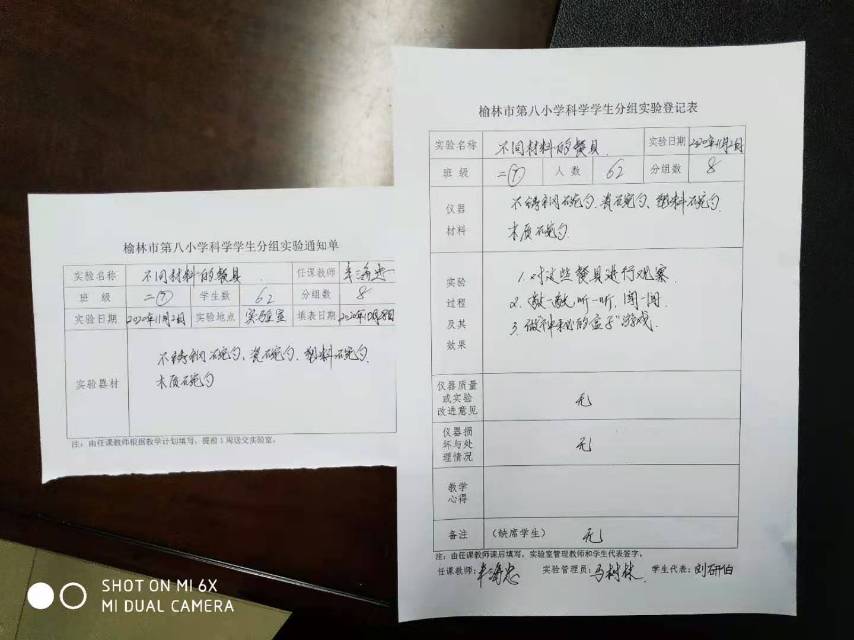 榆林市第八小学科学学生分组实验通知单
实验名称 不同材料的餐具 任课教师
班级 二⑦ 学生数 62 分组数 8
实验日期 2020年11月2日 实验地点 实验室 填表日期 2020年10月
实验器材
不锈钢碗勺、瓷碗勺、塑料碗勺
木质碗勺
注：由任课教师根据教学计划填写，提前1周送交实验室。
榆林市第八小学科学学生分组实验登记表
实验名称 不同材料的餐具 实验日期 2020年11月2日
班级 二⑦ 人数 62 分组数 8
仪器
材料
不锈钢碗勺、瓷碗勺、塑料碗勺
木质碗勺
实验
过程
及其
效果
1.对这些餐具进行观察
2.敲一敲,听一听,闻一闻
3.做“神秘的盒子”游戏.
仪器质量
或实验
改进意见
无
仪器损
坏与处
理情况
无
教学
心得
备注 (缺席学生) 无
注：由任课教师课后填写，实验室管理教师和学生代表签字。
任课教师: 实验管理员: 马树林 学生代表: 刘研伯
SHOT ON MI 6X
MI DUAL CAMERA